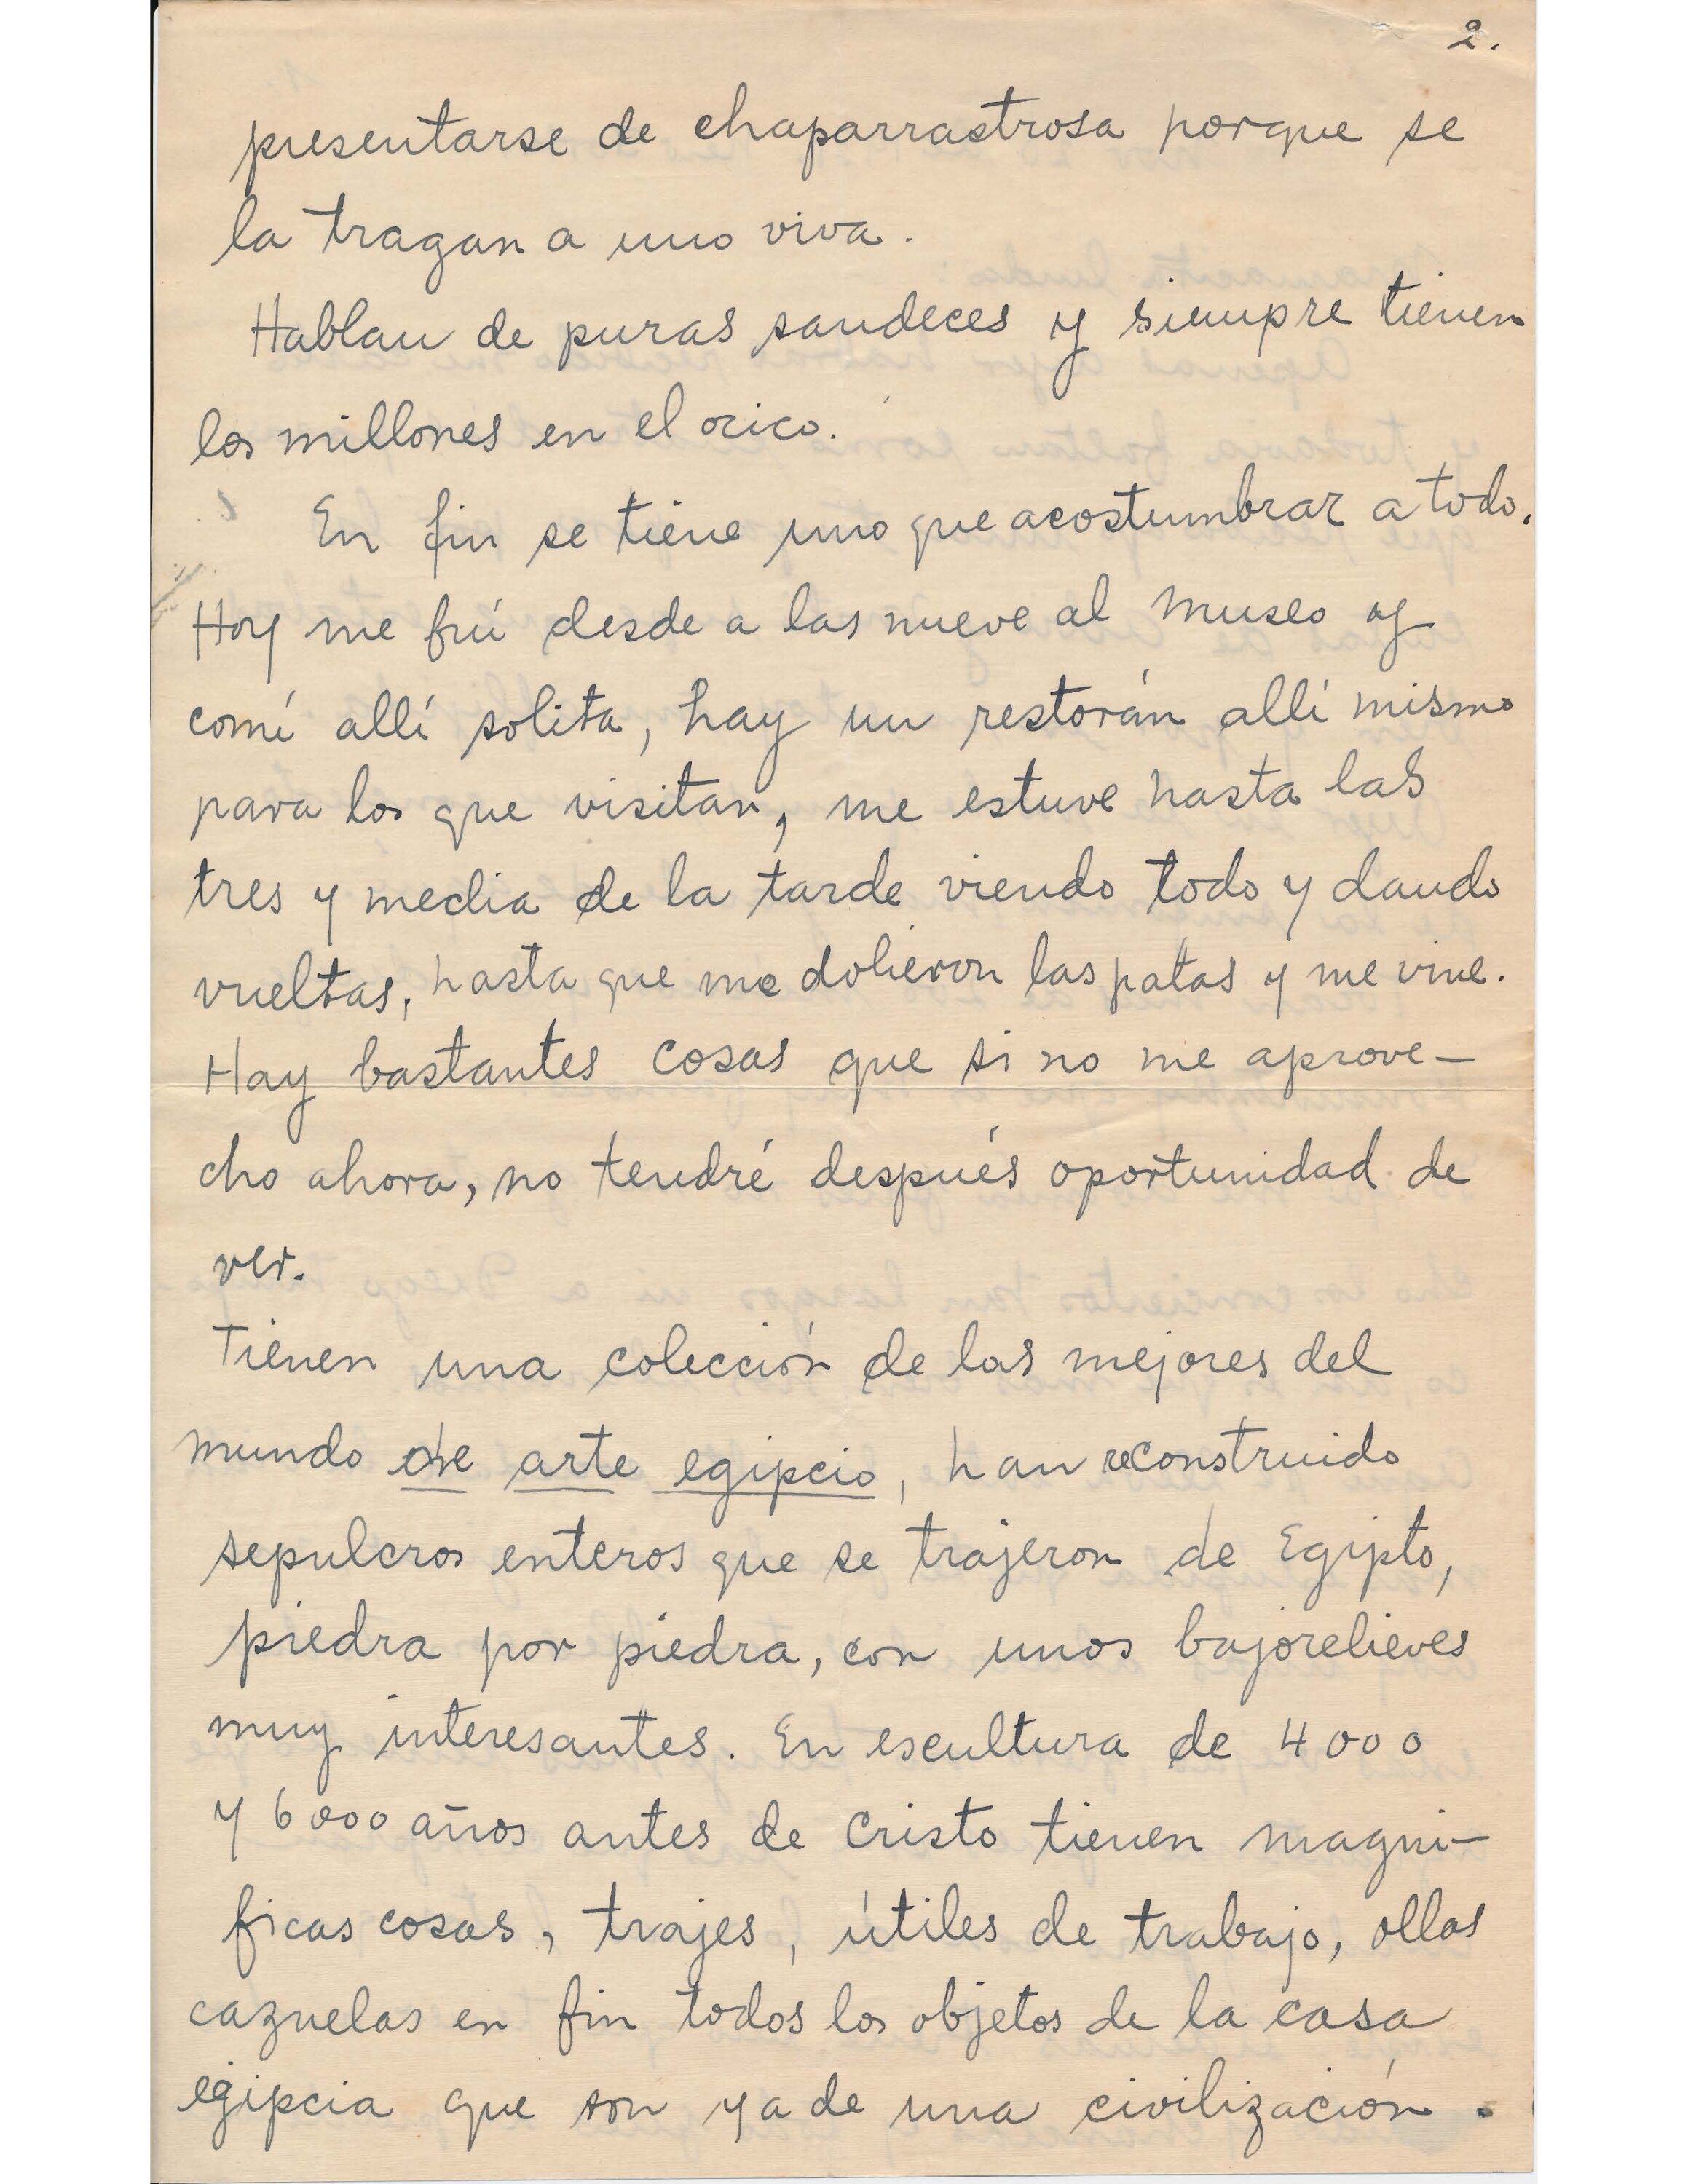 2.
presentarse de chaparrastrosa porque se
la tragan a uno viva.
Hablan de puras sandeces y siempre tienen
los millones en el ocico.
En fin se tiene uno que acostumbrar a todo.
Hoy me fuí desde a las nueve al museo y
comí allí solita, hay un restorán allí mismo
para los que visitan, me estuve hasta las
tres y media de la tarde viendo todo y dando
vueltas, hasta que me dolieron las patas y me vine.
Hay bastantes cosas que si no me aprove-
cho ahora, no tendré después oportunidad de
ver.
Tienen una colección de las mejores del
mundo de arte egipcio, han reconstruido
sepulcros enteros que se trajeron de Egipto,
piedra por piedra, con unos bajorelieves
muy interesantes. En escultura de 4000
y 6000 años antes de Cristo tienen magni-
ficas cosas, trajes, útiles de trabajo, ollas
cazuelas en fin todos los objetos de la casa
egipcia que son ya de una civilización.